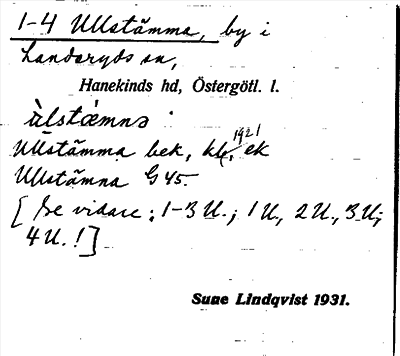 1-4 Ullstämma, by i
Landeryds sn,
Hanekinds hd, Östergötl. l.
ùlstæ̀mnə
Ullstämma bek, kk, 1921 ek
Ullstämna G 45.
[Se vidare: 1-3 U.; 1 U., 2 U., 3 U.;
4 U.!]
Sune Lindqvist 1931.